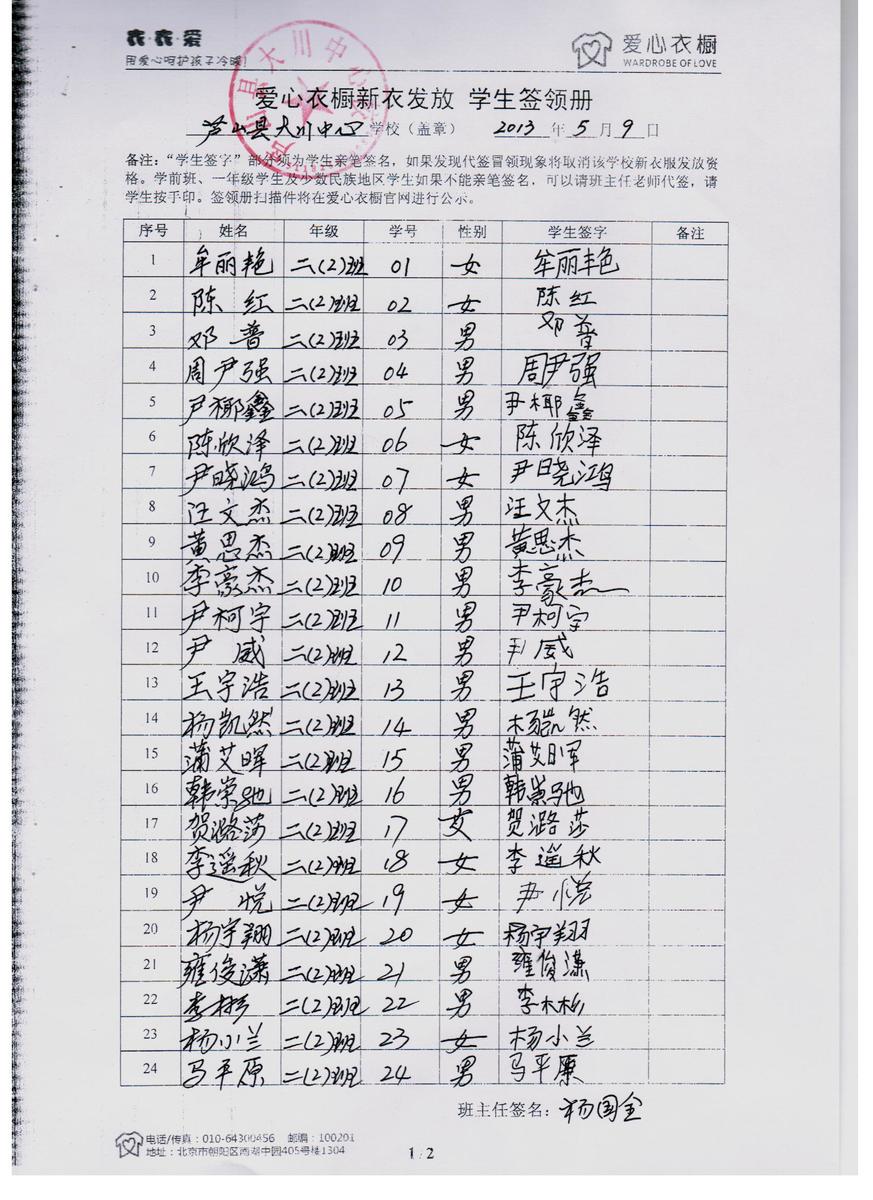 衣·衣·爱
用爱心呵护孩子冷暖!
爱心衣橱
WARDROBE OF LOVE
爱心衣橱新衣发放 学生签领册
芦山县大川中心学校(盖章) 2013年5月9日
备注:“学生签字”部分须为学生亲笔签名,如果发现代签冒领现象将取消该学校新衣服发放资
格。学前班、一年级学生及少数民族地区学生如果不能亲笔签名,可以请班主任老师代签,请
学生按手印。签领册扫描件将在爱心衣橱官网进行公示。
序号 姓名 年级 学号 性别 学生签字 备注
1 牟丽艳 二(2)班 01 女 牟丽艳
2 陈红 二(2)班 02 女 陈红
3 邓普 二(2)班 03 男 邓普
4 周尹强 二(2)班 04 男 周尹强
5 尹椰鑫 二(2)班 05 男 尹椰鑫
6 陈欣泽 二(2)班 06 女 陈欣泽
7 尹晓鸿 二(2)班 07 女 尹晓鸿
8 汪文杰 二(2)班 08 男 汪文杰
9 黄思杰 二(2)班 09 男 黄思杰
10 李豪杰 二(2)班 10 男 李豪杰
11 尹柯宇 二(2)班 11 男 尹柯宇
12 尹威 二(2)班 12 男 尹威
13 王宇浩 二(2)班 13 男 王宇浩
14 杨凯然 二(2)班 14 男 杨凯然
15 蒲艾晖 二(2)班 15 男 蒲艾晖
16 韩崇驰 二(2)班 16 男 韩崇驰
17 贺潞莎 二(2)班 17 女 贺潞莎
18 李遥秋 二(2)班 18 女 李遥秋
19 尹悦 二(2)班 19 女 尹悦
20 杨宇翔 二(2)班 20 女 杨宇翔
21 雍俊潇 二(2)班 21 男 雍俊潇
22 李彬 二(2)班 22 男 李彬
23 杨小兰 二(2)班 23 女 杨小兰
24 马平原 二(2)班 24 男 马平原
班主任签名:杨国全
电话/传真:010-64300456 邮编:100201
地址:北京市朝阳区南湖中园405号楼1304
1/2